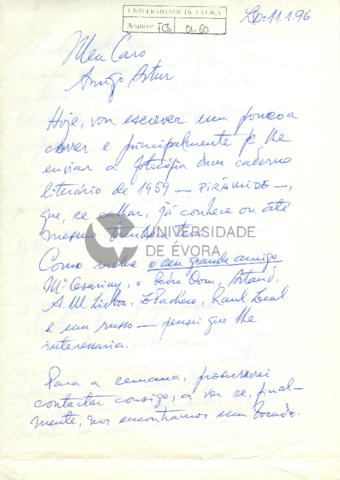 UNIVERSIDADE DE ÉVORA
Arquivo: FCS 01.60
Lx: 11.1.96
Meu Caro
Amigo Artur
Hoje, vou escrever um pouco a
correr e principalmente p. lhe
enviar a fotocópia dum caderno
literário de 1959 — PIRÂMIDE —,
que, se calhar, já conhece ou até
mesmo
UNIVERSIDADE
DE ÉVORA
Como o seu grande amigo
M. Cesariny, o Pedro Oom, Artaud,
A. M. Lisboa, L. Pacheco, Raul Leal
e um russo — pensei que lhe
interessaria.
Para a semana, procurarei
contactar consigo, a ver se, final-
mente, nos encontramos um bocado.